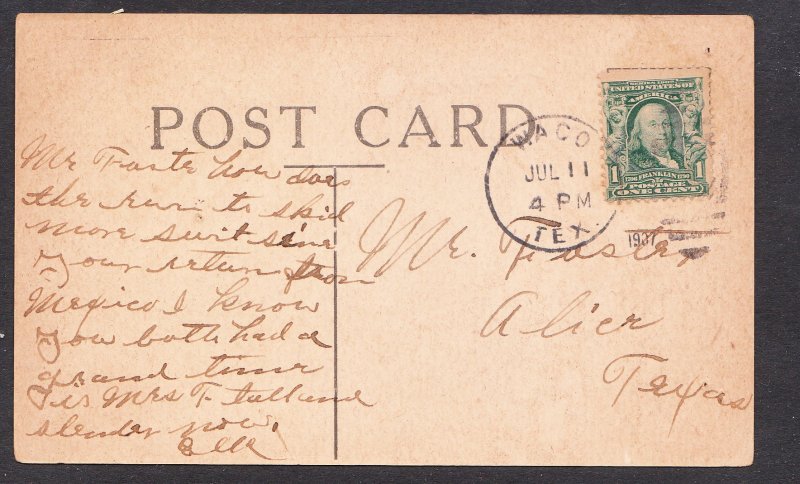 POST CARD
Mr Foste how does
the run to skid
more suit since
your return from
Mexico I know
you both had a
grand time
is Mrs F. tall and
slender now.
WACO
JUL 11
4 PM
TEX.
1907
SERIES 1902
UNITED STATES OF
AMERICA
1 1
1706 FRANKLIN 1790
POSTAGE
ONE CENT
Mr. Foster
Alice
Texas